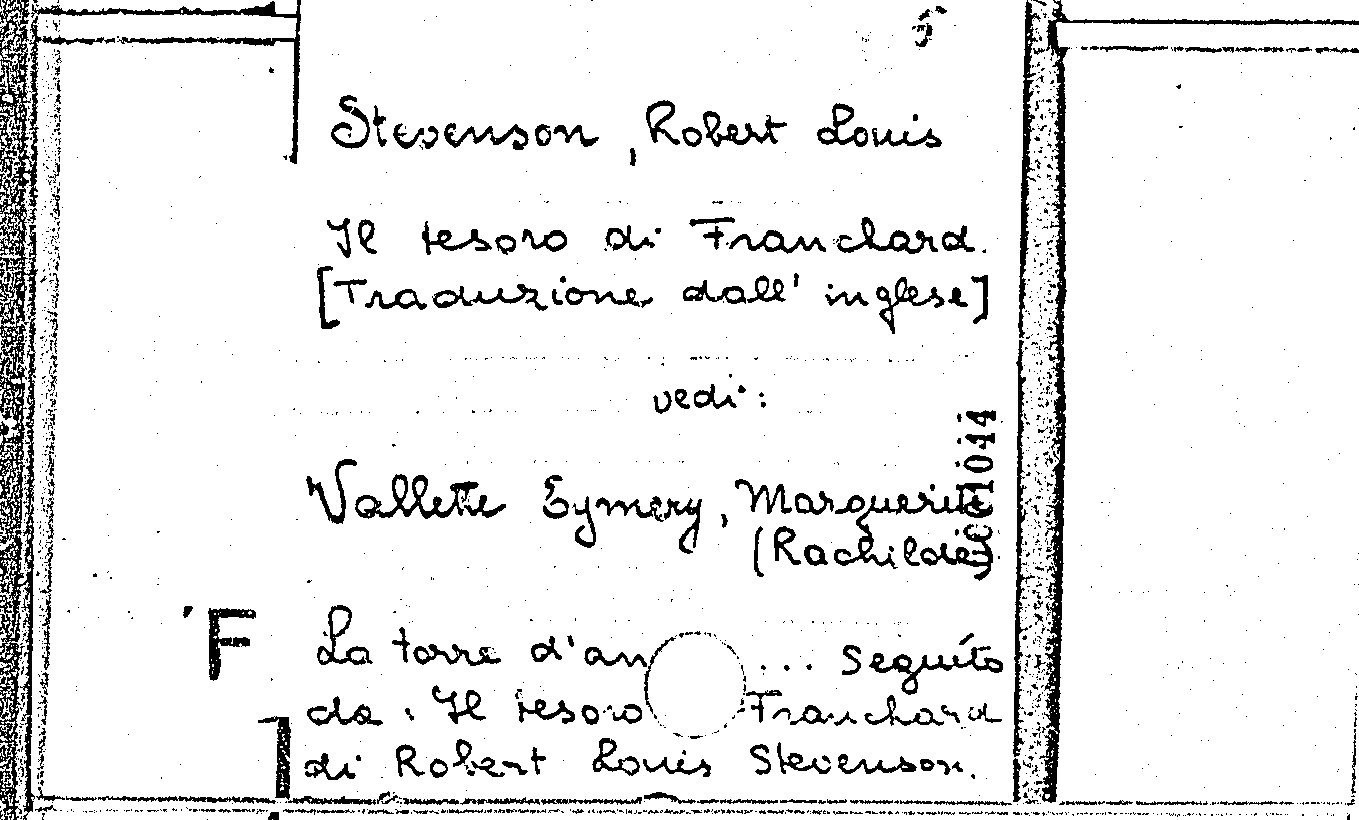 5
Stevenson, Robert Louis
Il tesoro di Franchard.
[Traduzione dall'inglese]
vedi:
Vallette Eymery, Marguerite
(Rachilde)
La torre d'am ... Seguito
da: Il tesoro Franchard
di Robert Louis Stevenson.
F
1044